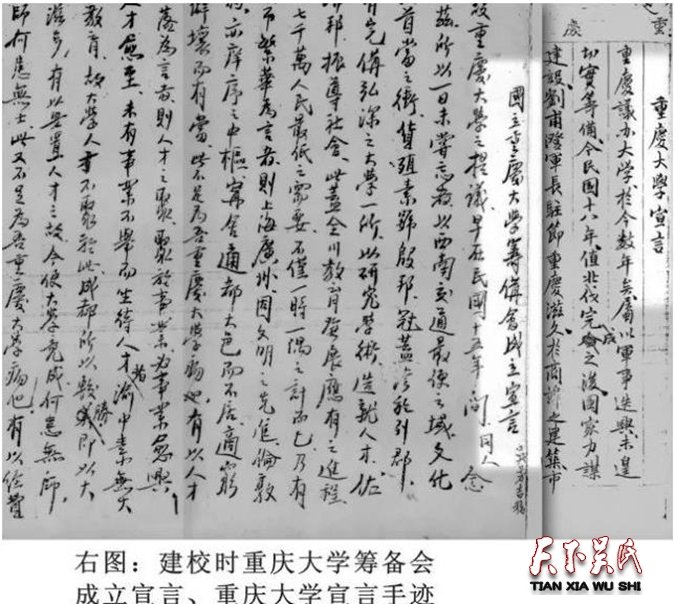 重慶大學宣言
重慶議办大学於今数年矣屬以軍事迭興未遑
切實筹備令民國十八年值北伐完成之後國家力謀
建設劉甫澄軍長駐節重慶滋久於商埠之建築市
國立重慶大學籌備會成立宣言
設重慶大學之提議早在民國十五年間同人念
茲所以一日未嘗忘者以西南交通最便之域文化
首當之衝貨殖素號殷邦冠蓋
有完備弘深之大學一所以研究學術造就人才佐
邦振導社會此蓋全川教育發展應有之進程
而繁華為言者則上海廣州固文明之先進倫敦
七千萬人民最低之需要不僅一時一隅之計而已乃有
亦庠序之中樞寧會通都大邑即不居適窮
僻壤而有當此不足為吾重慶大學病也有以人才
落為言者則人才之聚聚於事業為事業愈興
人才愈至未有事業不舉而坐待人才者渝中素無大
教育故大學人才不聚於此成都所以較勝即以大
有以安置人才之故今使大學完成何患無師
師何患無士此又不足為吾重慶大學病也有以經費
右图：建校时重庆大学筹备会
成立宣言、重庆大学宣言手迹
天下吴氏
TIAN XIA WU SHI